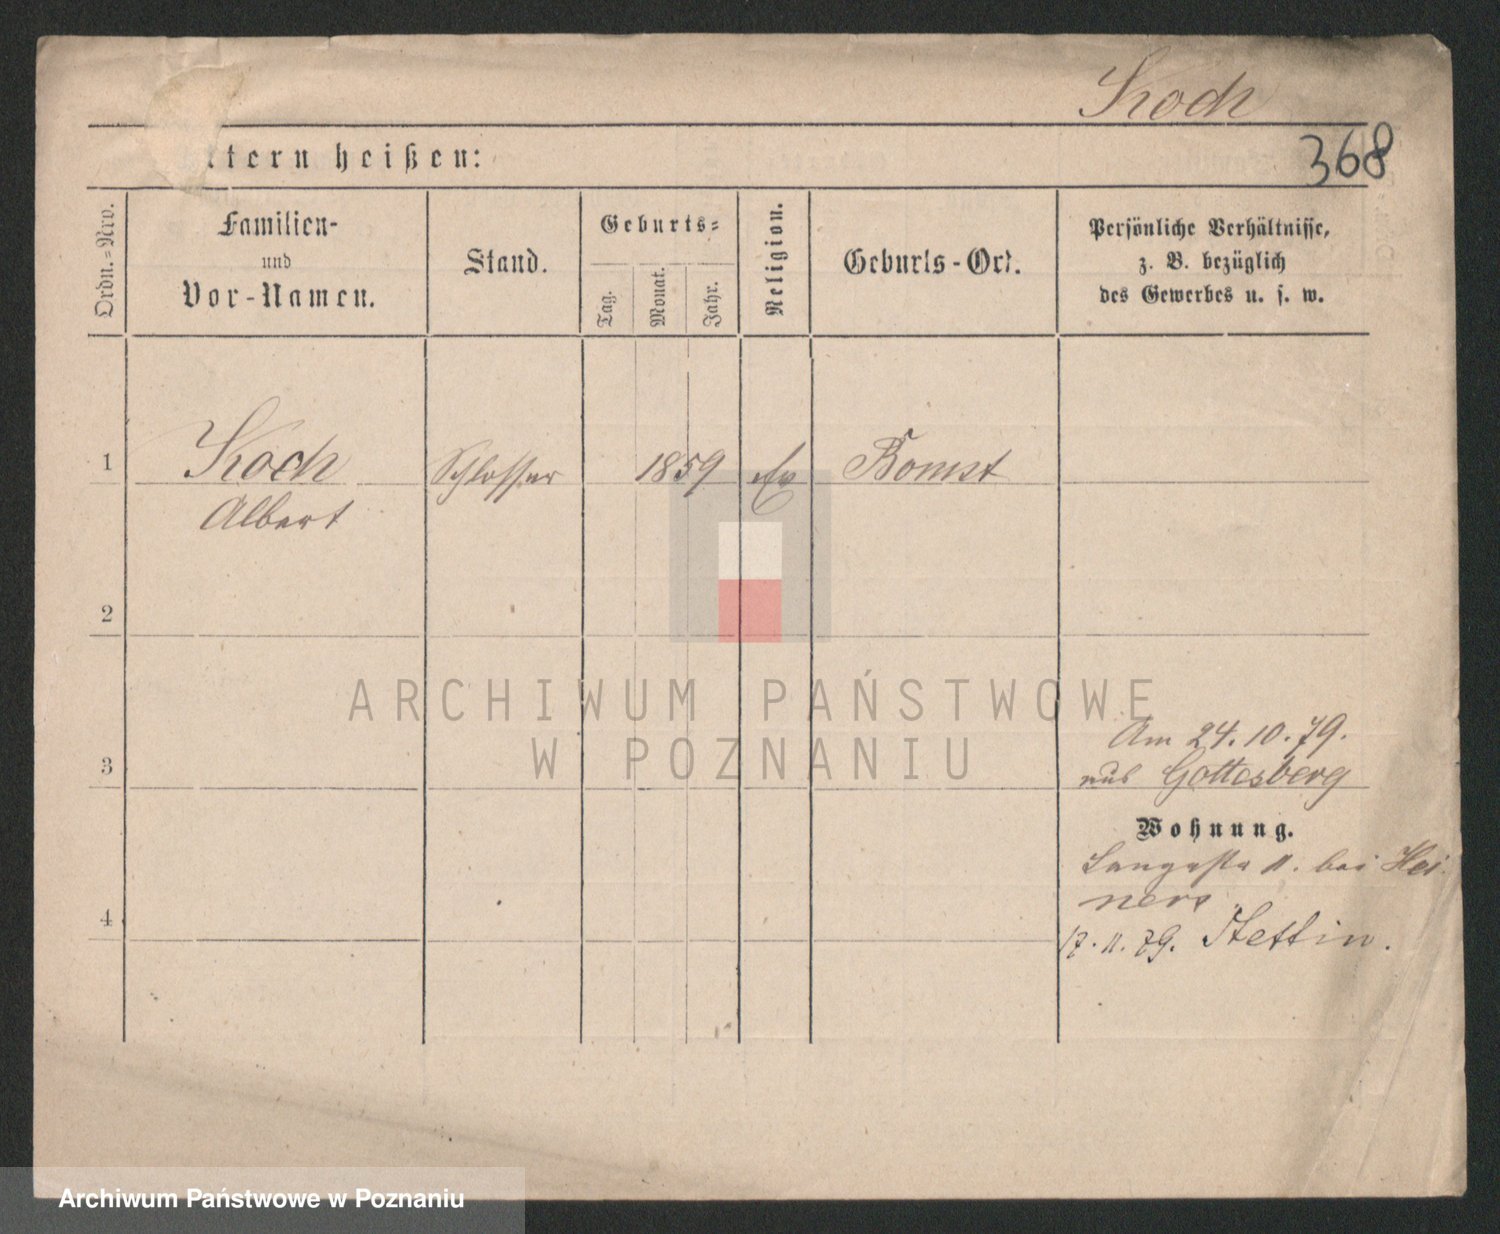 Koch
368
ltern heißen:
Ordn.-Nro.
Familien-
und
Vor-Namen.
Stand.
Geburts-
Tag.
Monat.
Jahr.
Religion.
Geburts-Ort.
Persönliche Verhältnisse,
z. B. bezüglich
des Gewerbes u. s. w.
1 Koch Schlosser 1859 Ev Bomst
Albert
2
ARCHIWUM PAŃSTWOWE
W POZNANIU
Am 24.10.79.
3 aus Gottesberg
Wohnung.
11. bei Hei
ners
4
17.11.79. Stettin.
Archiwum Państwowe w Poznaniu